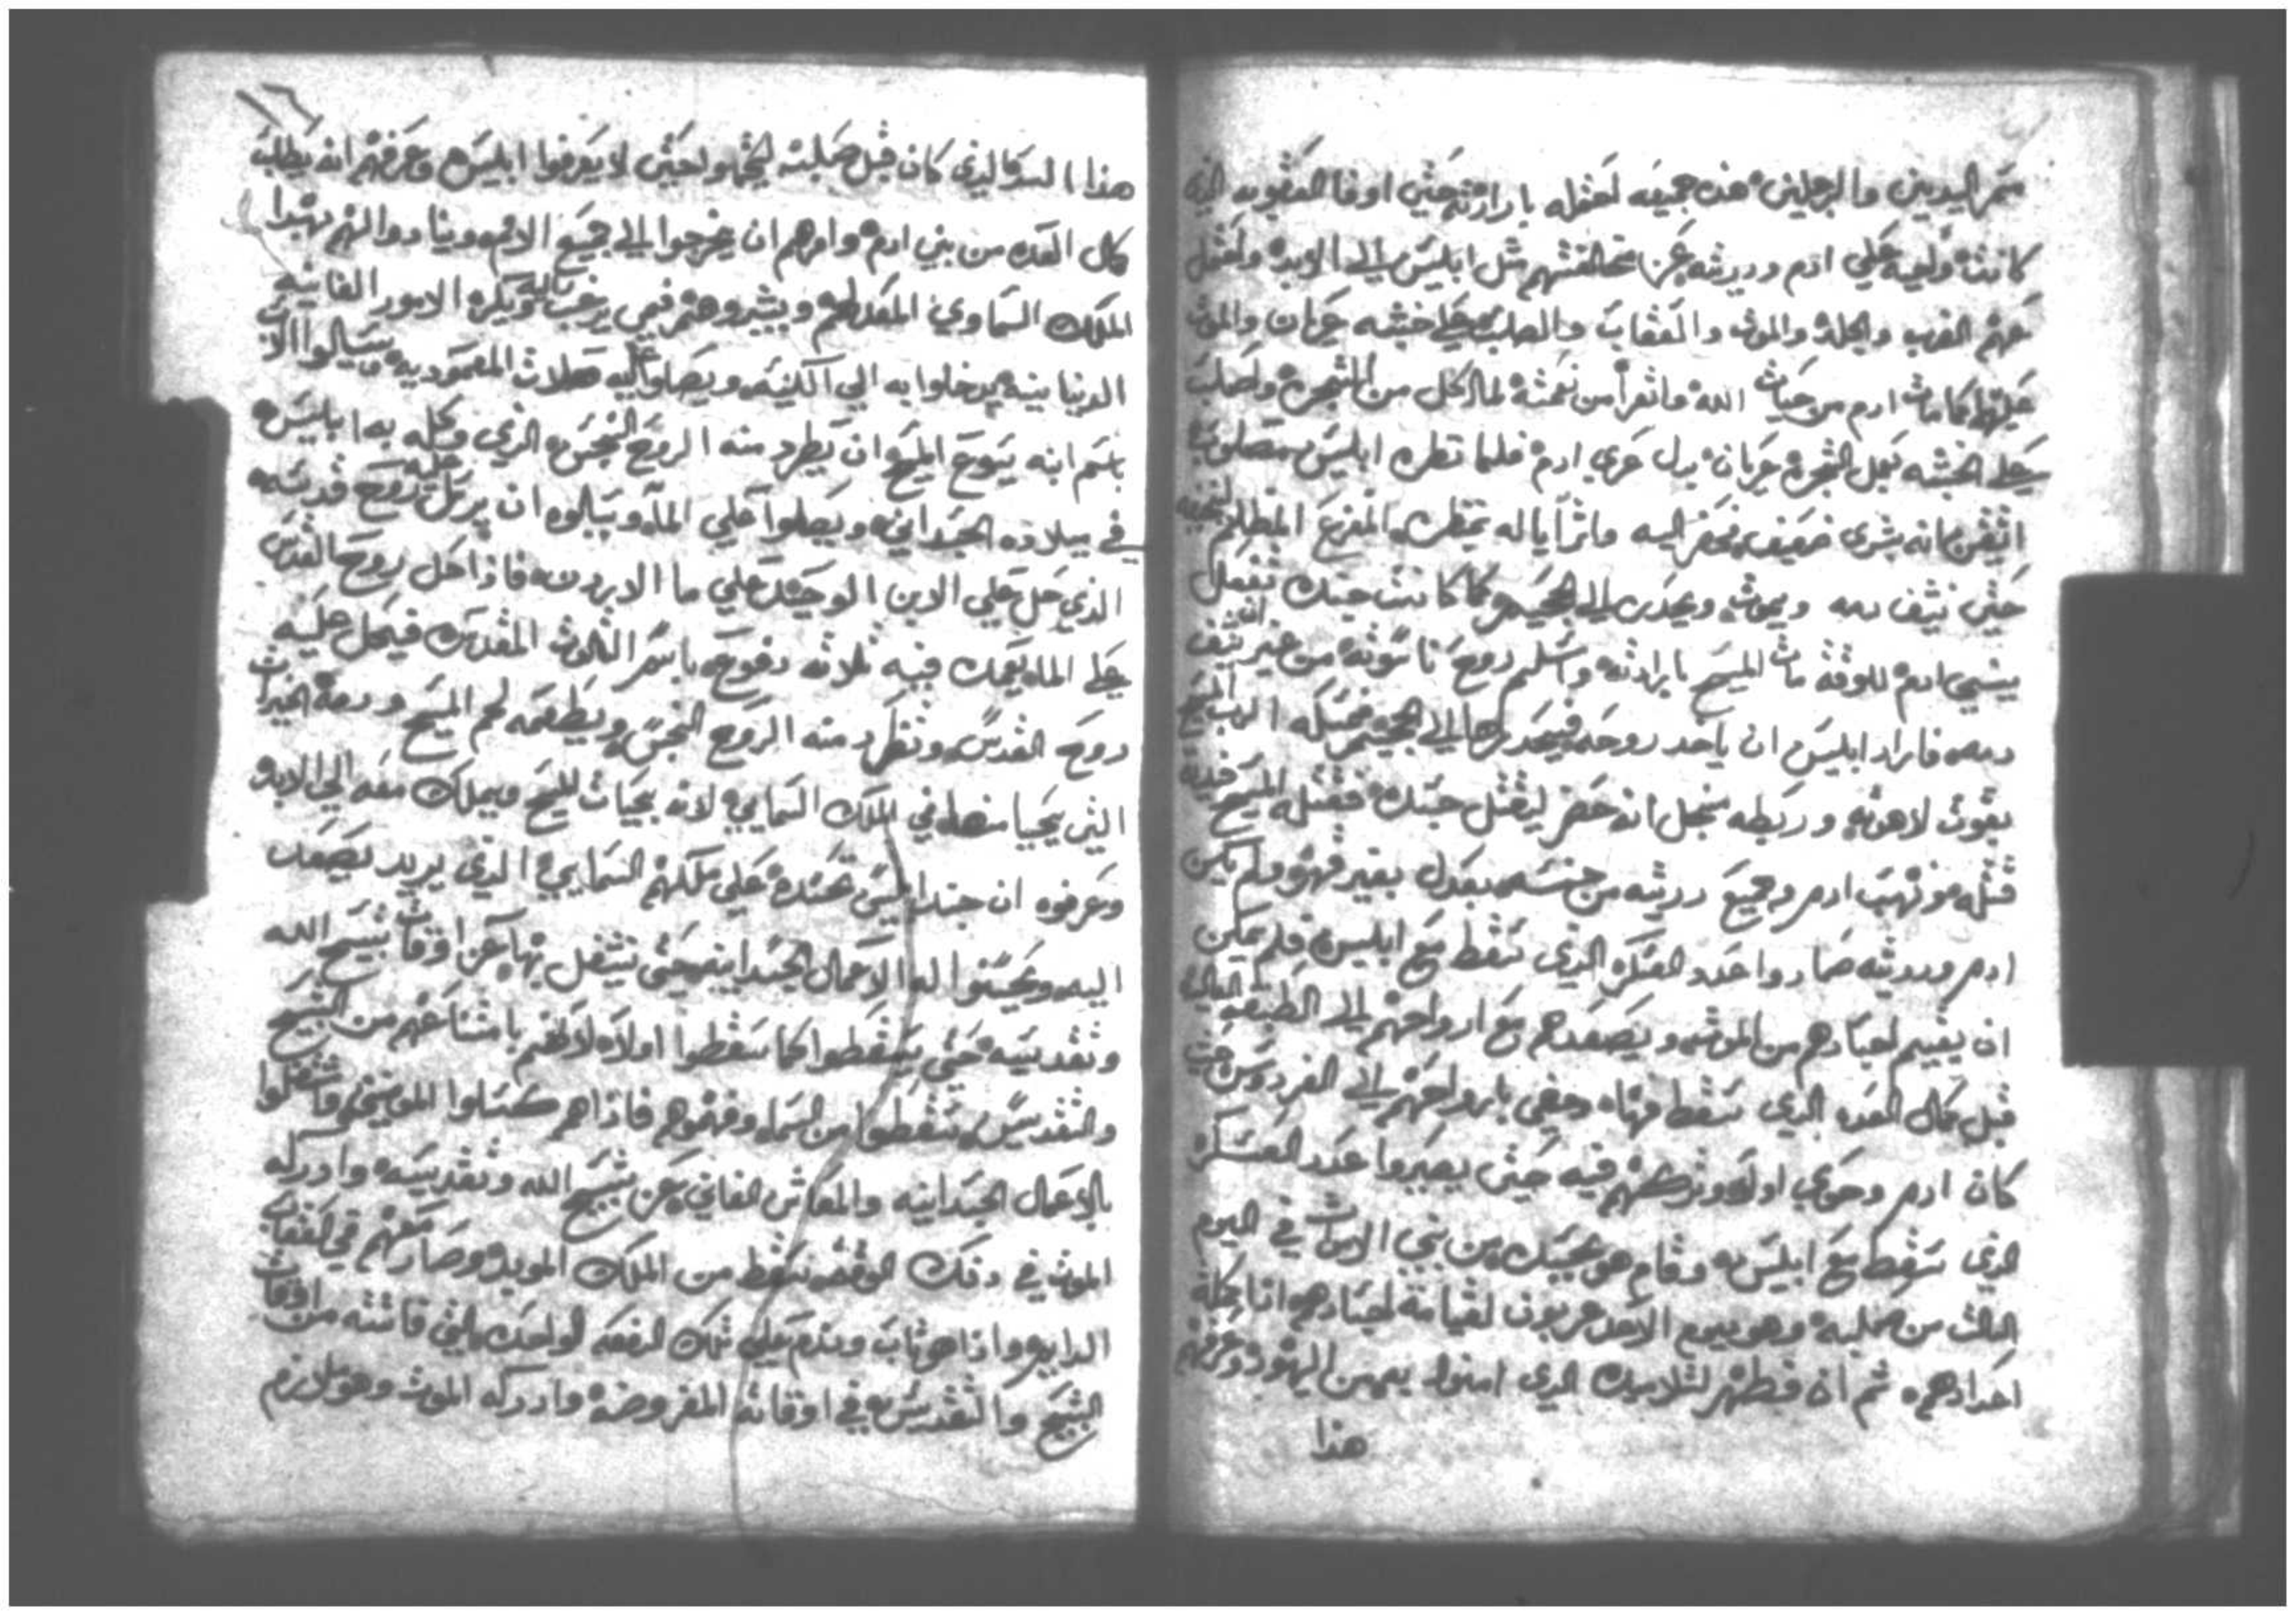 سمر اليدين والرجلين هذه جميعه احتمله بارادته حتي اوفا العقوبه الذي
كانت وليه علي ادم ودريته عن مخالفتهم مثل ابليس الي الابد واحتمل
عنهم الضرب والجلد والموت والعقاب والصلب علي خشبه عريان والموت
عليها كما مات ادم من حيات الله واتعرا من نعمته لما اكل من الشجره وصلب
علي الخشبه كحل الشجره عريان بدل عري ادم فلما نظره ابليس مصلوب
اتيقن انه بشري ضعيف فحضر اليه واترايا له بمنظره المفزع المظلم
حتي نيثف دمه ويموت ويحدره الي الجحيم كما كانت حيتك تفعل
ببني ادم للوقت مات المسيح بارادته واسلم روح ناسوته من غير نيثف
دمه فاراد ابليس ان ياخد روحه فيحدرها الي الجحيم فمسكه الرب المسيح
بقوت لاهوته وربطه منجل انه حضر ليقتل جسده فقتله المسيح
قتله عوض ادم وجميع دريته من جنسه بعدل بغير قهر ولم يكن
ادم ودريته صاروا عدد العسكر الذي سقط مع ابليس فلم يمكن
ان يقيم اجسادهم من الموت ويصعدهم مع ارواحهم الي الطبقه العاليه
قبل كمال العدد الذي سقط منها ومضي بارواحهم الي الفردوس حيث
كان ادم وحوي اولا وتركهم فيه حتي يصيروا عدد العسكر
الذي سقط مع ابليس وقام هو بجسده من بين الاموات في اليوم
التالت من صلبه وهو يوم الاحد عربون لقيامة اجسادهم
اجسادهم تم ان فطهر لتلاميده الذي امنوا بهمن اليهود وعرفهم
هذا
هذا السر الذي كان قبل صلبته ليخفوا حتي لا يعرفوا ابليس وعرفهم انه يطلب
كمال العدد من بني ادم وامرهم ان يخرجوا الي جميع الامم وينادوا لهم بهدا
الملك السماوي المعد لهم ويبشروهم فمن يرغب اليه ويكره الامور الفانيه
الدنيا بينه يدخلوا به الي الكنيسه ويصلوا عليه صلات المعموديه ويسالوا الاب
باسم ابنه يسوع المسيح ان يطرد منه الروح النجس الذي وكله به ابليس
في ميلاده الجسداني ويصلوا علي الماء ويسالوه ان يرسل عليه روح قدسه
الذي حل علي الابن الوحيد علي ما الاردن فاذا حل روح القدس
علي الماء يعمد فيه ثلاثه دفوع باسم الثالوث المقدس فيحل عليه
روح القدس وتطرد منه الروح النجس ويطعمه لحم المسيح ودمه
التي يحيا منها في الملك السمايي لانه بحيات المسيح ويملك معه الي الابد
وعرفوه ان جند ابليس تحسده علي ملكهم السمايي الذي يريد يصعد
اليه ويحسنوا له الاعمال الجسدانيه حتي تشغل بها عن اوقات تسبيح الله
وتقديسه حتي يسقطوا كما سقطوا اولا لانهم بامتناعهم من التسبيح
والتقديس سقطوا من السما وفهموهم فاذاهم كسلوا المومنين واشتغلوا
بالاعمال الجسدانيه والمعاش الفاني عن تسبيح الله وتقديسه وادركه
الموت في دلك الوقت سقط من الملك المويد وصار معهم في العقاب
الدايم واذا هو تاب وندم علي تلك الدفعه الواحده التي فاتته من اوقات
التسبيح والتقديس في اوقاته المفروضه وادركه الموت وهو ملازم